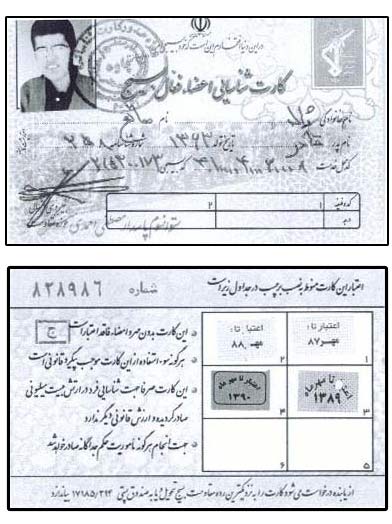 در این دنیا افتخارم این است که خود بسیجی‌ام
کارت شناسایی اعضاء فعال بسیج
نام خانوادگی نام
نام پدر تاریخ تولد ۱۳۶۳ شماره شناسنامه ۲۵۸
کد محل خدمت کد بسیجی
کد وظیفه ۱ ۲
دوم
ستوانسوم پاسدار مصطفی احمدی
اعتبار این کارت منوط به نصب برچسب در جداول زیر است
شماره ۸۲۸۹۸۶
اعتبار تا: مهر ۸۷
۱
اعتبار تا: مهر ۸۸
۲
اعتبار تا مهر ماه ۱۳۸۹
۳
اعتبار تا مهر ماه ۱۳۹۰
۴
۵
۶
این کارت بدون مهر و امضاء فاقد اعتبار است ج
هرگونه سوء استفاده از این کارت موجب پیگرد قانونی است
این کارت صرفا جهت شناسایی فرد در ارتش بیست میلیونی
صادر گردیده و ارزش قانونی دیگر ندارد
جهت انجام هرگونه ماموریت حکم جداگانه صادر خواهد شد
از یابنده درخواست می شود کارت را به نزدیکترین رده مقاومت بسیج تحویل و یا به صندوق پستی ۱۷۱۸۵/۲۹۴ بیاندازد